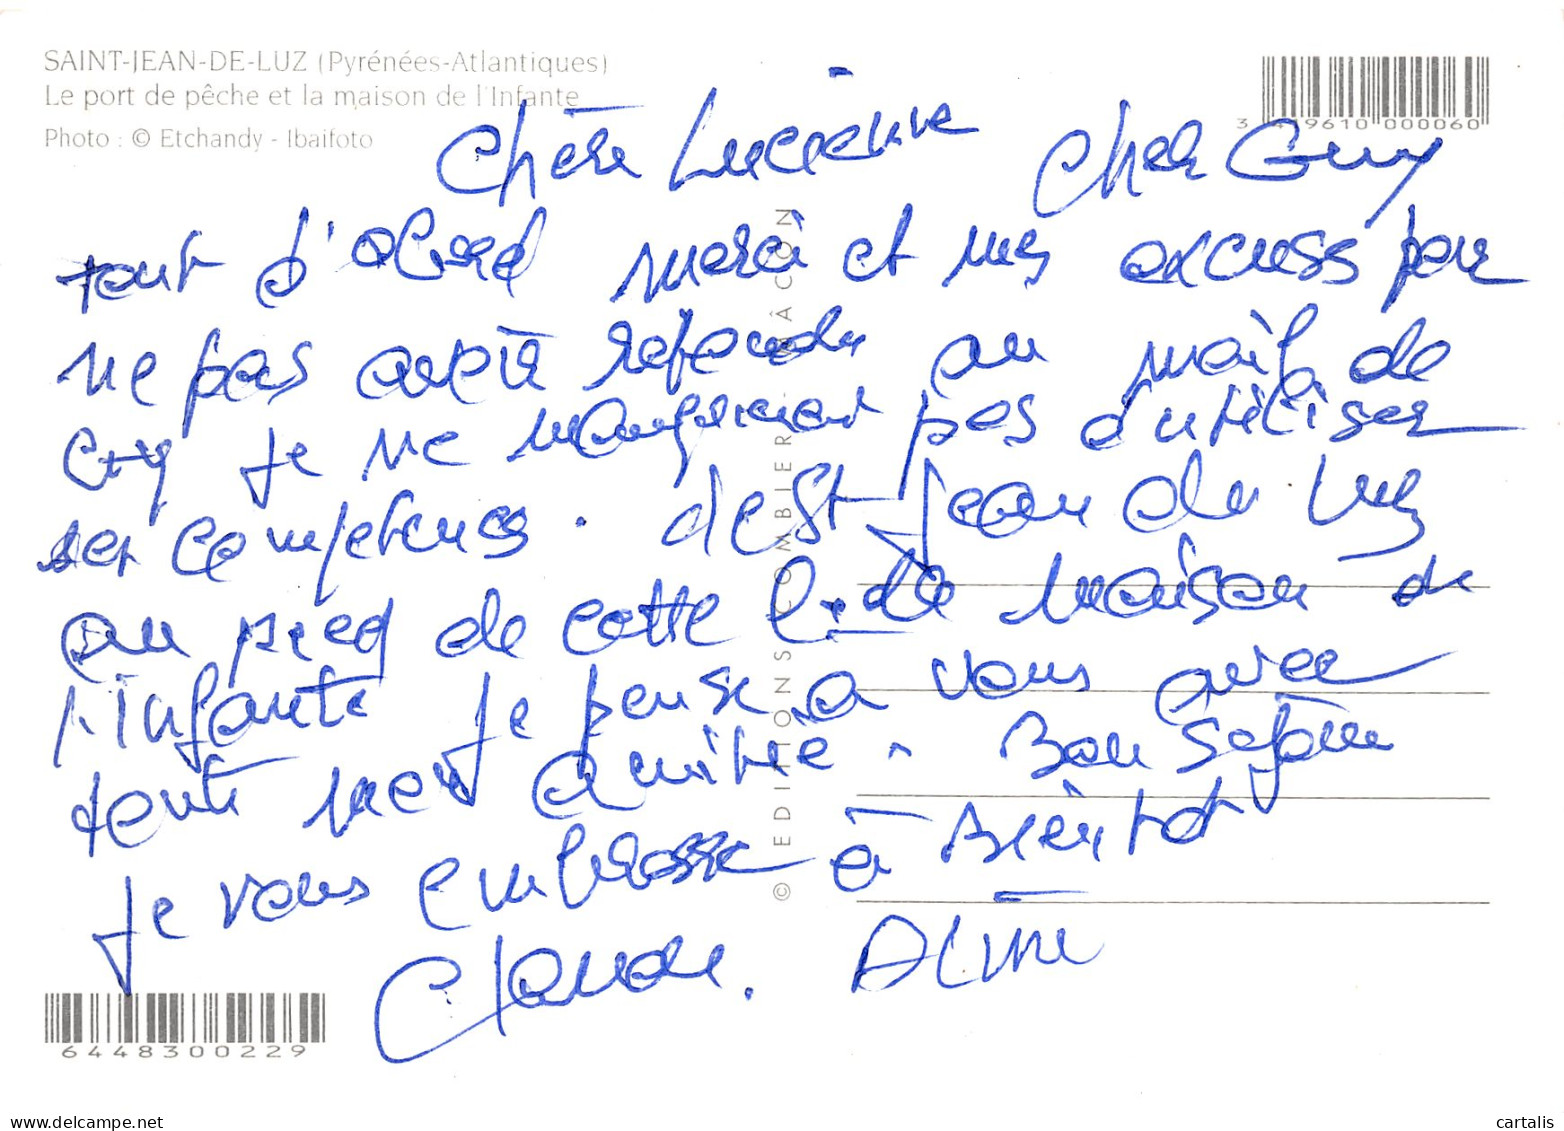 SAINT-JEAN-DE-LUZ (Pyrénées-Atlantiques)
Le port de pêche et la maison de l'Infante
Photo : © Etchandy - Ibaifoto
3 419610 000060
Chère Lucienne Cher Guy
tout d'abord merci et mes excuses pour
ne pas avoir répondu au mail de
Guy je ne manquerai pas d'utiliser
ses compétences. de St Jean de Luz
au pied de cette maison de
l'infante je pense à vous avec
toute mon amitié. Bon séjour
je vous embrasse à Bientôt
Claude. Aline
© EDITIONS COMBIER - MÂCON
6448300229
delcampe.net
cartalis